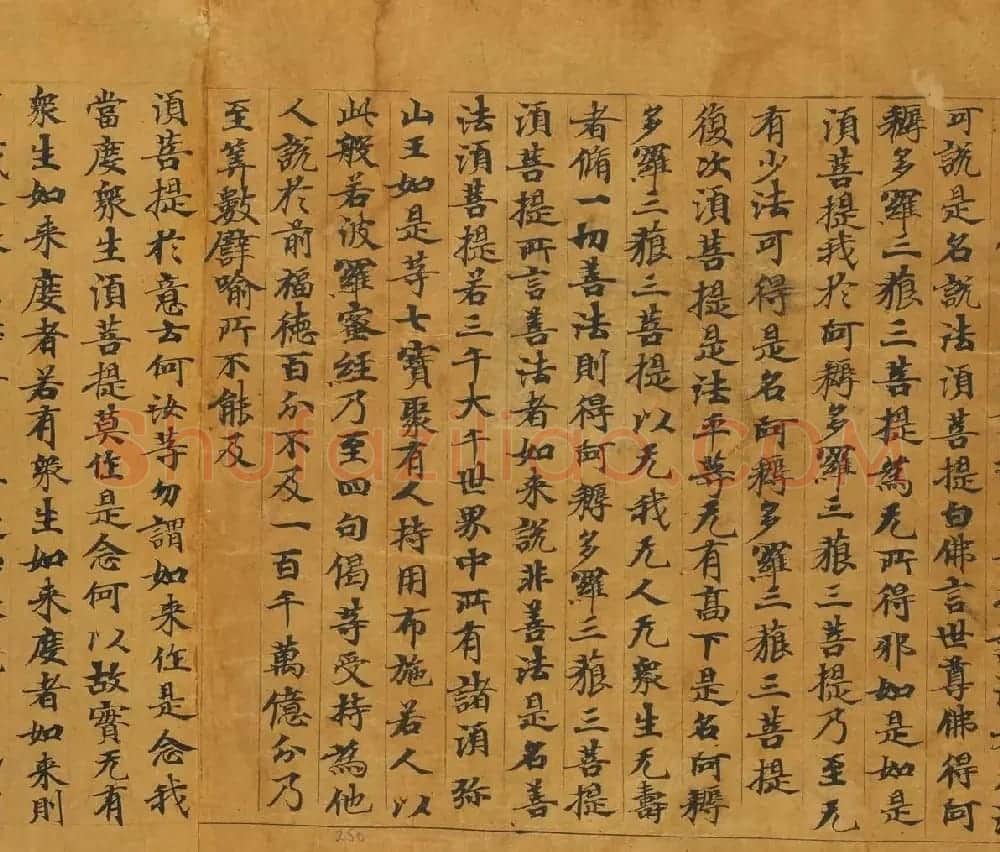 可說是名說法須菩提白佛言世尊佛得阿
耨多羅三藐三菩提為无所得耶如是如是
須菩提我於阿耨多羅三藐三菩提乃至无
有少法可得是名阿耨多羅三藐三菩提
復次須菩提是法平等无有高下是名阿耨
多羅三藐三菩提以无我无人无衆生无壽
者脩一切善法則得阿耨多羅三藐三菩提
須菩提所言善法者如来說非善法是名善
法須菩提若三千大千世界中所有諸須弥
山王如是等七寶聚有人持用布施若人以
此般若波羅蜜經乃至四句偈等受持為他
人說於前福德百分不及一百千萬億分乃
至筭數譬喻所不能及
須菩提於意云何汝等勿謂如来作是念我
當度衆生須菩提莫作是念何以故實无有
衆生如来度者若有衆生如来度者如来則
Shufaziliao.COM
250